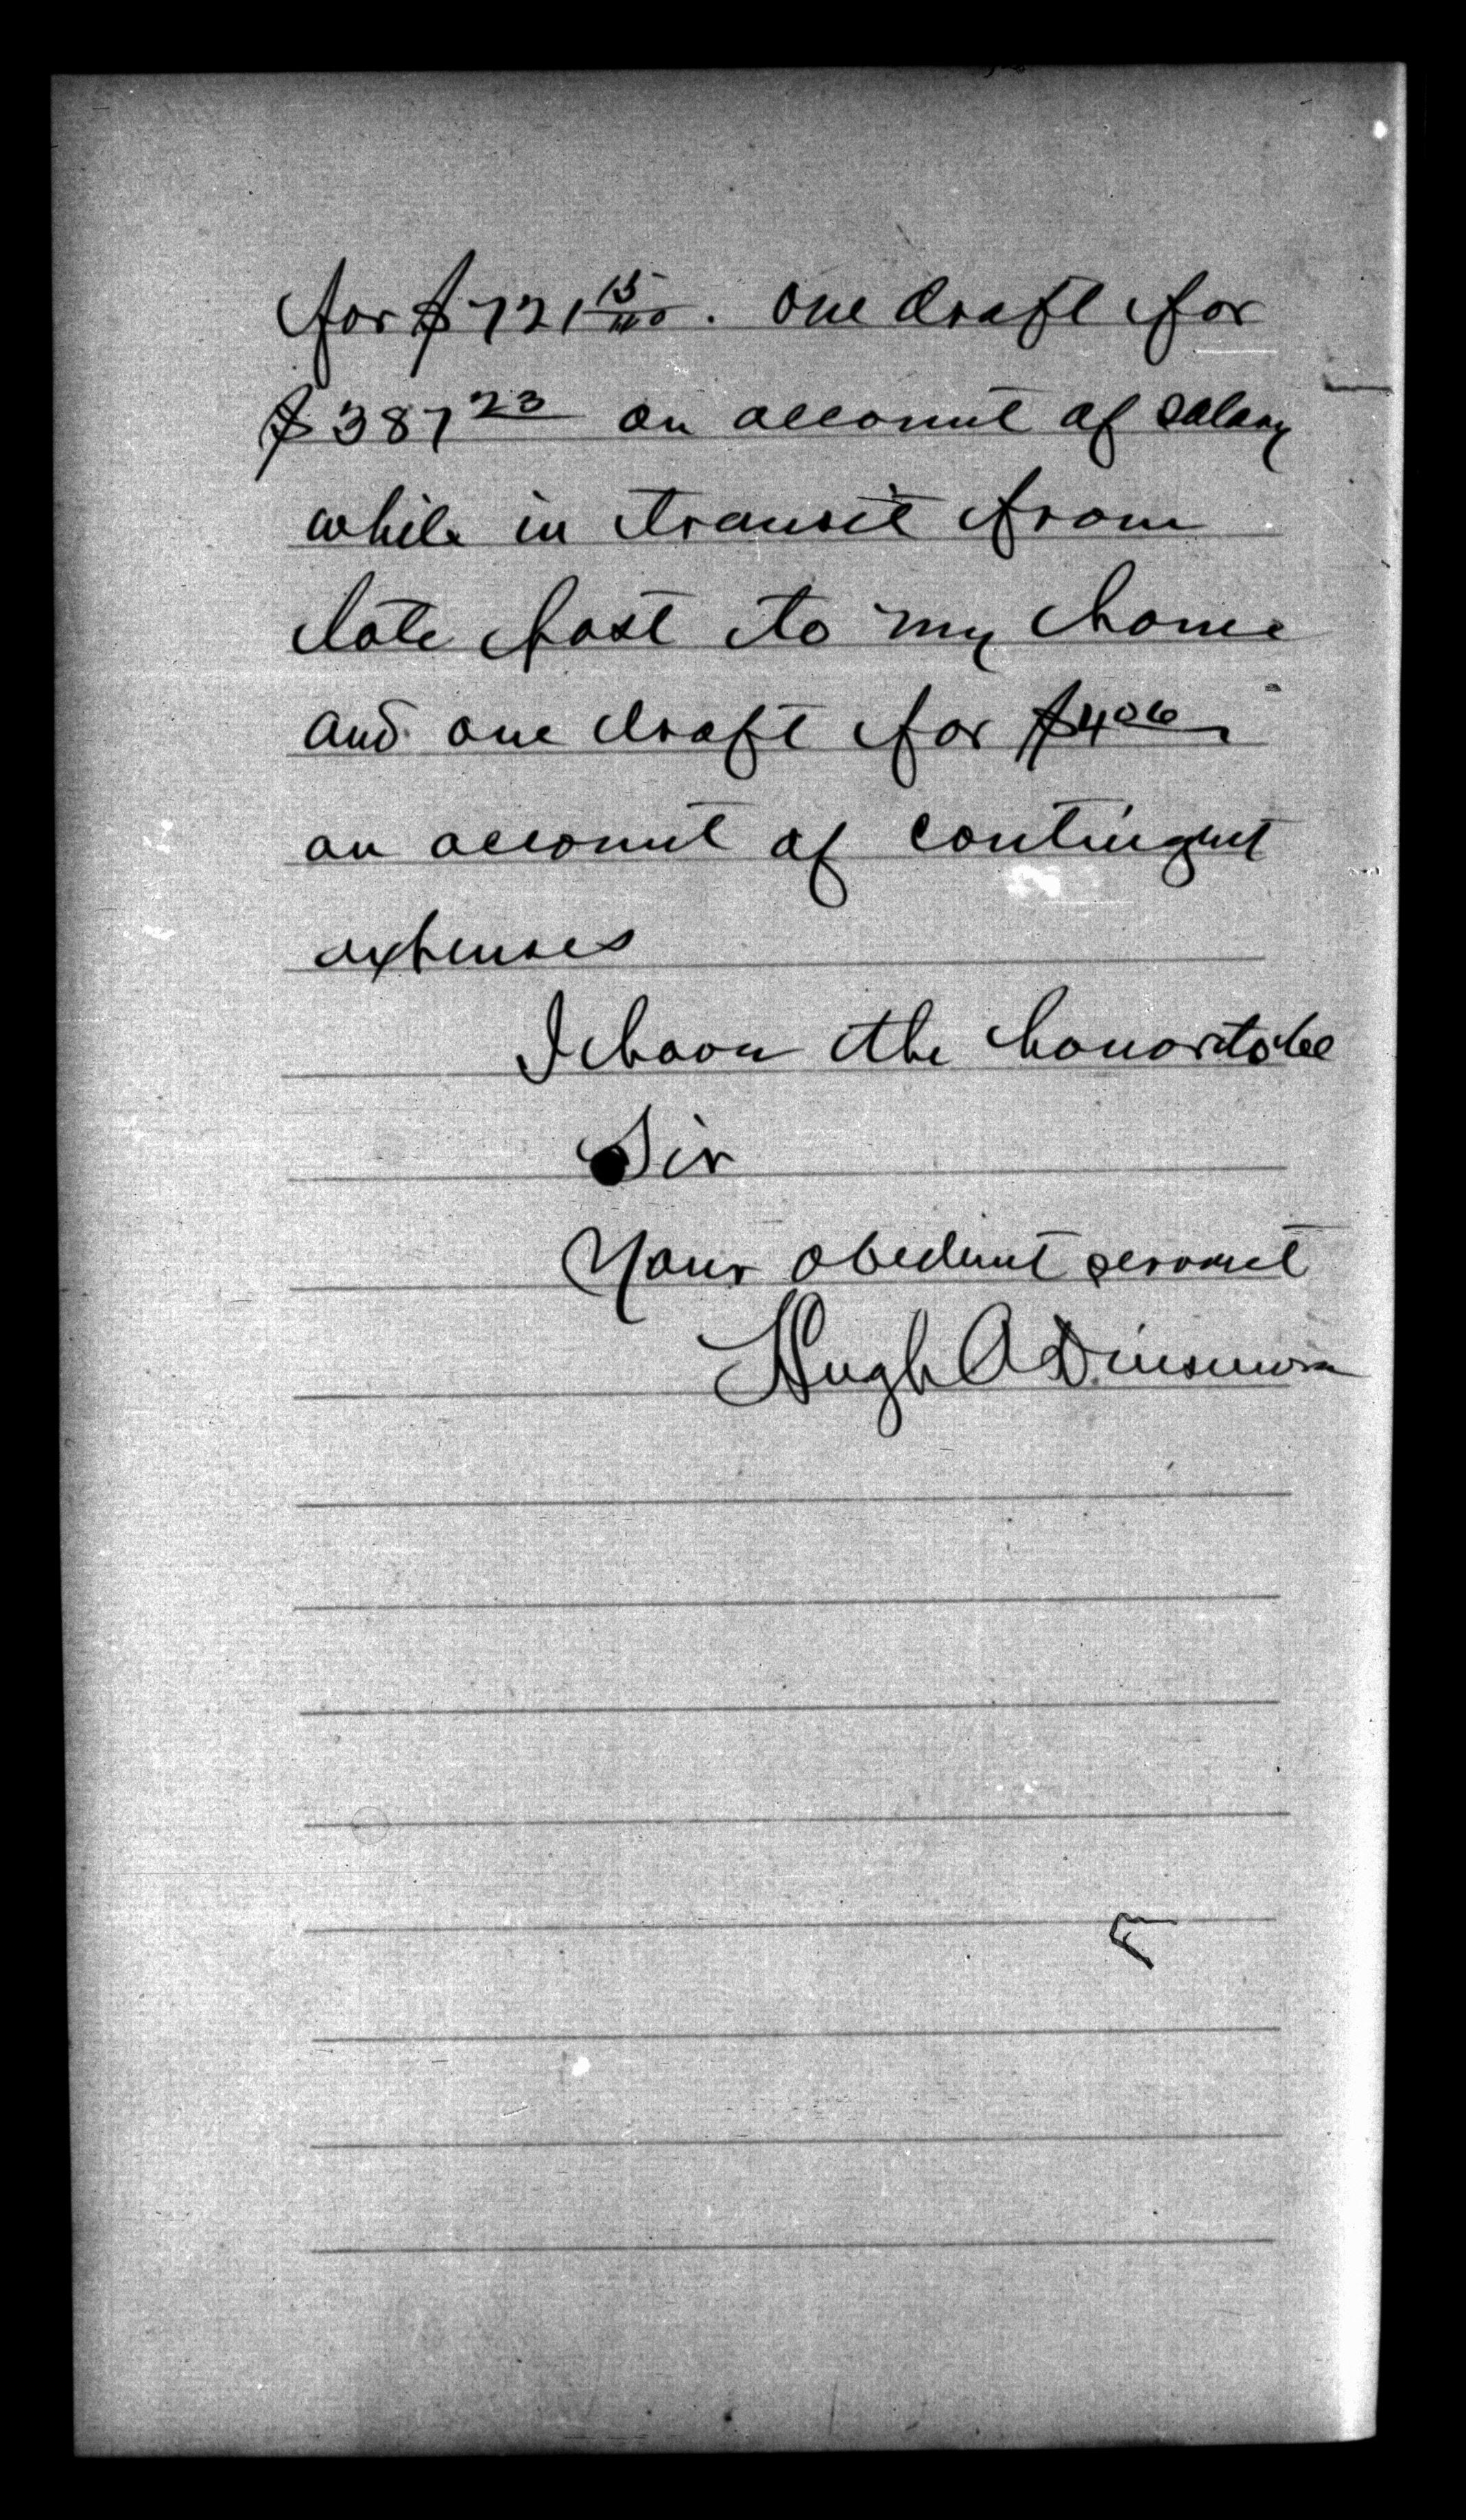 for $721 15/100. One draft for
$387 23 on account of salary
while in transit from
late post to my home
and one draft for $4 06
on account of contingent
expenses
I have the honor to be
Sir
Your obedient servant
Hugh A Dinsmore